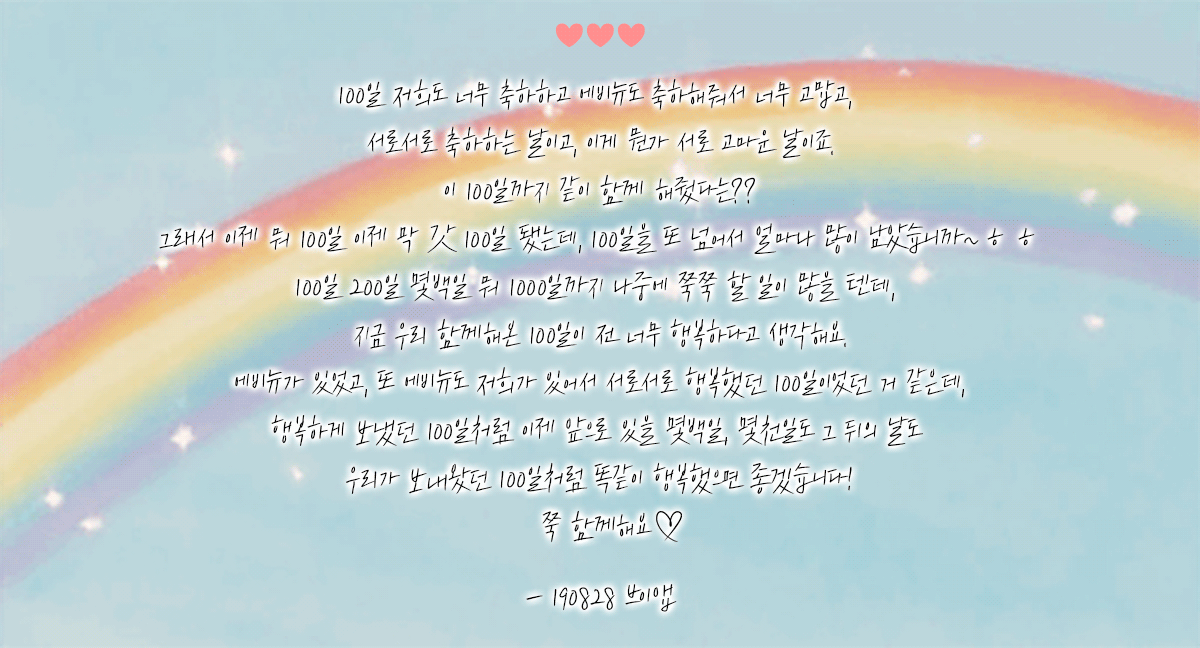 100일 저희도 너무 축하하고 에비뉴도 축하해줘서 너무 고맙고,
서로서로 축하하는 날이고, 이게 뭔가 서로 고마운 날이죠.
이 100일까지 같이 함께 해줬다는??
그래서 이제 뭐 100일 이제 막 갓 100일 됐는데, 100일을 또 넘어서 얼마나 많이 남았습니까~ ㅎ ㅎ
100일 200일 몇백일 뭐 1000일까지 나중에 쭉쭉 할 일이 많을 텐데,
지금 우리 함께해온 100일이 전 너무 행복하다고 생각해요.
에비뉴가 있었고, 또 에비뉴도 저희가 있어서 서로서로 행복했던 100일이었던 거 같은데,
행복하게 보냈던 100일처럼 이제 앞으로 있을 몇백일, 몇천일도 그 뒤의 날도
우리가 보내왔던 100일처럼 똑같이 행복했으면 좋겠습니다!
쭉 함께해요♡
- 190828 브이앱